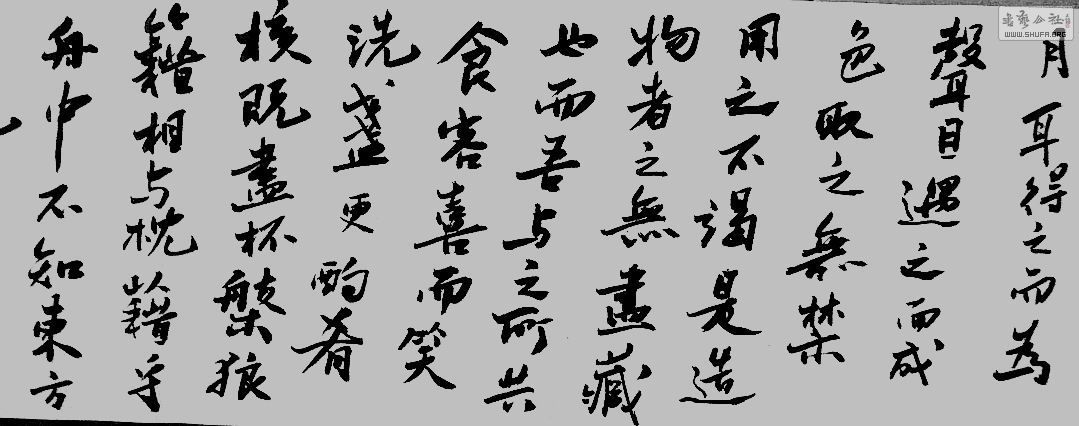 月耳得之而為
聲目遇之而成
色取之無禁
用之不竭是造
物者之無盡藏
也而吾与之所共
食客喜而笑
洗盞更酌肴
核既盡杯槃狼
籍相与枕藉乎
舟中不知東方
WWW.SHUFA.ORG